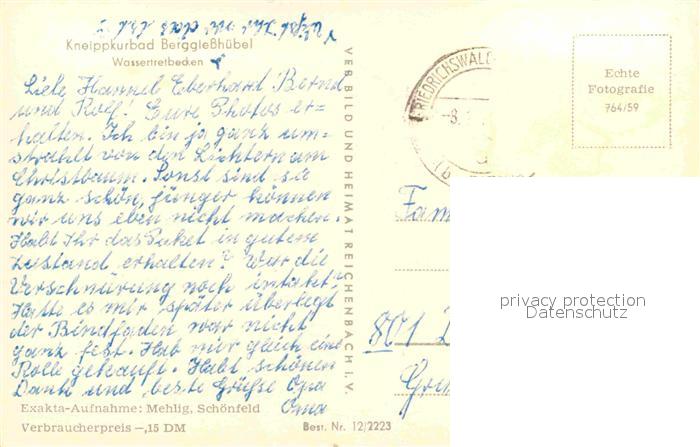 Kneippkurbad Berggießhübel
Wassertretbecken
Liebe Hannel Eberhard Bernd
und Rolf! Eure Photos er-
halten. Ich bin ja ganz um-
strahlt von den Lichtern am
Christbaum. Sonst sind sie
ganz schön, jünger können
wir uns eben nicht machen.
Habt Ihr das Paket in gutem
Zustand erhalten? War die
Verschnürung noch intakt?
Hatte es mir später überlegt
der Bindfaden war nicht
ganz fest. Hab mir gleich eine
Rolle gekauft. Habt schönen
Dank und beste Grüße Opa
Oma
Exakta-Aufnahme: Mehlig, Schönfeld
Verbraucherpreis -,15 DM
Best. Nr. 12/2223
VEB BILD UND HEIMAT REICHENBACH I. V.
FRIEDRICHSWAL
-8.
Echte
Fotografie
764/59
Fam
801 D
privacy protection
Datenschutz